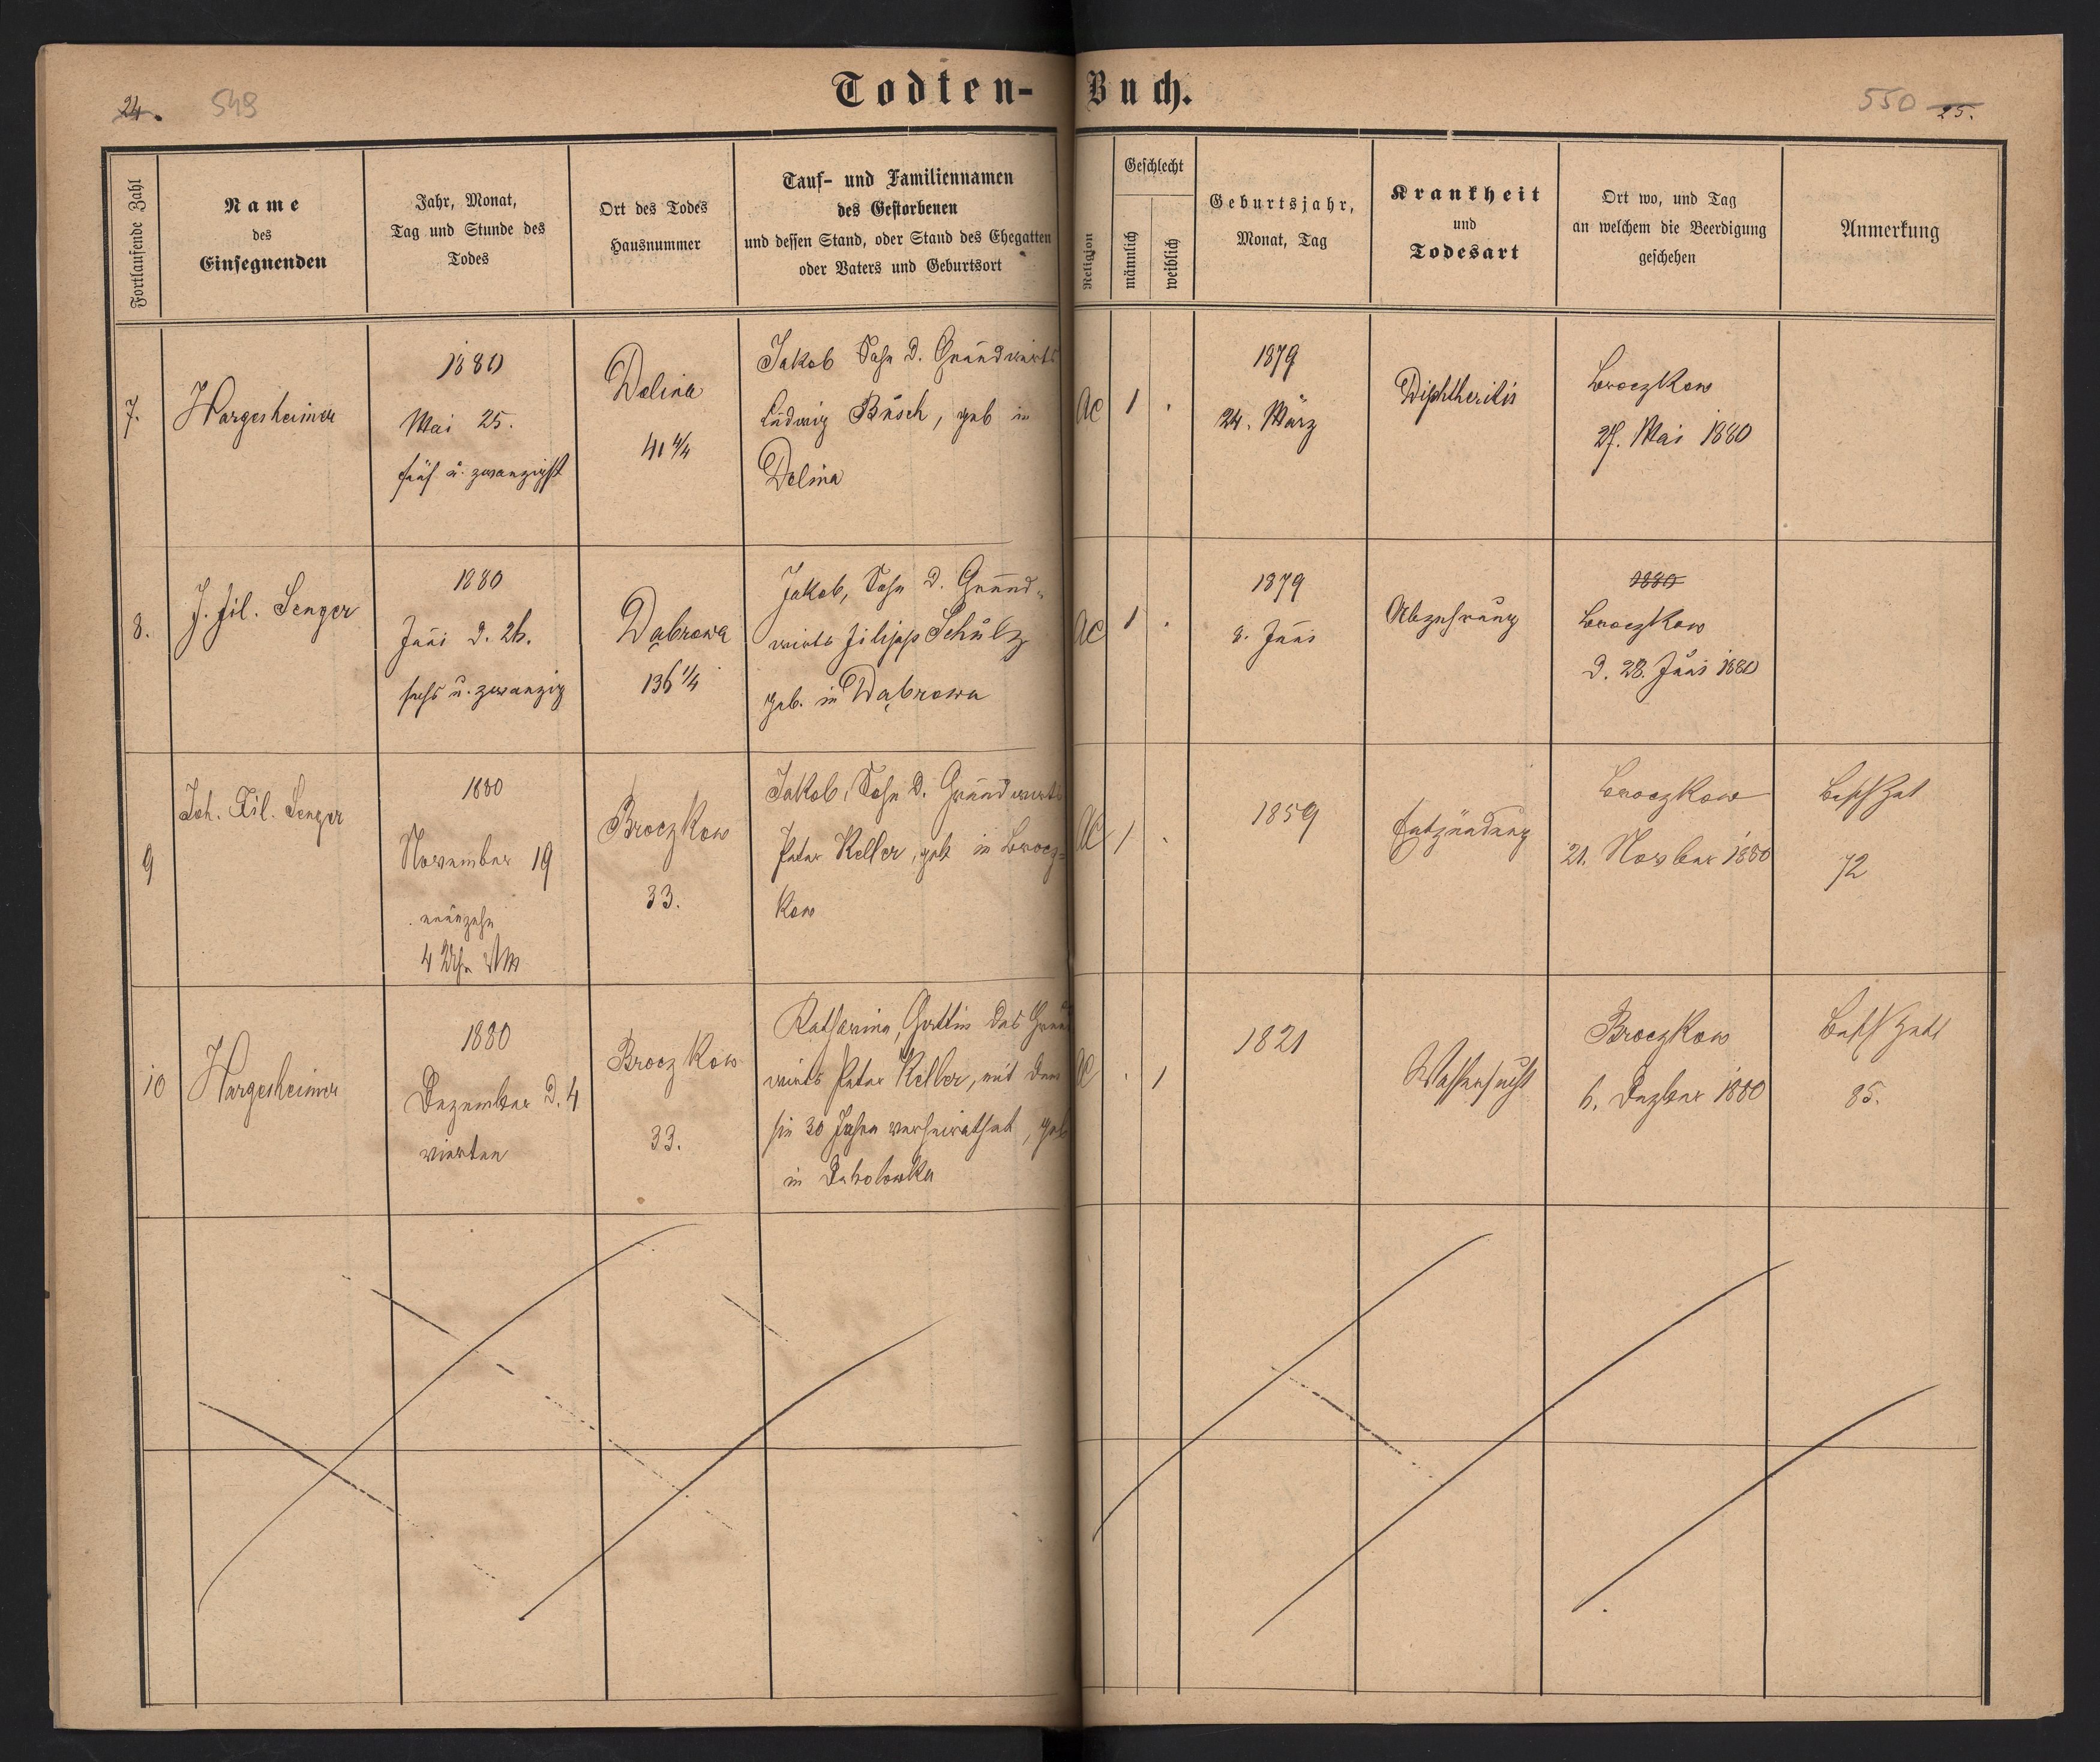 Todten-Buch.
24. 549
550 25.
Fortlaufende Zahl
Name
des
Einsegnenden
Jahr, Monat,
Tag und Stunde des
Todes
Ort des Todes
Hausnummer
Tauf- und Familiennamen
des Gestorbenen
und dessen Stand, oder Stand des Ehegatten
oder Vaters und Geburtsort
Religion
Geschlecht
männlich
weiblich
Geburtsjahr,
Monat, Tag
Krankheit
und
Todesart
Ort wo, und Tag
an welchem die Beerdigung
geschehen
Anmerkung
7.
Hargesheimer
1880
Mai 25.
fünf u. zwanzigst
Dolina
41 4/4
Jakob Sohn d. Grundwirts
Ludwig Busch, geb in
Dolina
AC
1 .
1879
24. März
Diphtheritis
Broczkow
27. Mai 1880
8.
J. fil. Senger
1880
Juni d. 26.
sechs u. zwanzig
Dąbrowa
136 1/4
Jakob, Sohn d. Grund-
wirts filipp Schulz
geb. in Dąbrowa
AC
1 .
1879
8. Juni
Abzehrung
1880
Broczkow
d. 28. Juni 1880
9
Joh. Fil. Senger
1880
November 19
neunzehn
4 Uhr NM
Broczkow
33.
Jakob, Sohn d. Grundwirts
Peter Keller, geb in Brocz-
kow
AC
1 .
1859
Entzündung
Broczkow
21. Novber 1880
BeschZal
72
10
Hargesheimer
1880
Dezember d. 4
vierten
Broczkow
33.
Katharina, Gattin des Grund
wirts Peter Keller, mit dem
sie 30 Jahre verheirathet, geb
in
AC
. 1
1821
Wassersucht
Broczkow
6. Dezber 1880
BeschZahl
85.